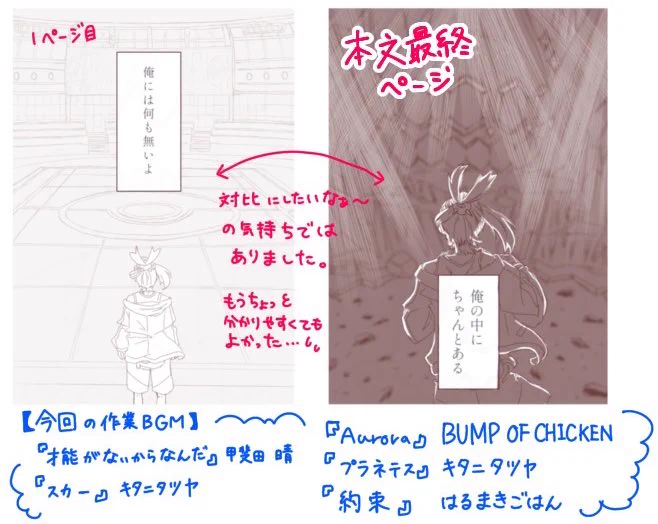 1ページ目
俺には何も無いよ
本文最終
ページ
対比にしたいなぁ〜
の気持ちでは
ありました。
もうちょっと
分かりやすくても
よかった…
俺の中に
ちゃんとある
【今回の作業BGM】
『才能がないからなんだ』 甲斐田 晴
『スカー』 キタニタツヤ
『Aurora』 BUMP OF CHICKEN
『プラネテス』 キタニタツヤ
『約束』 はるまきごはん